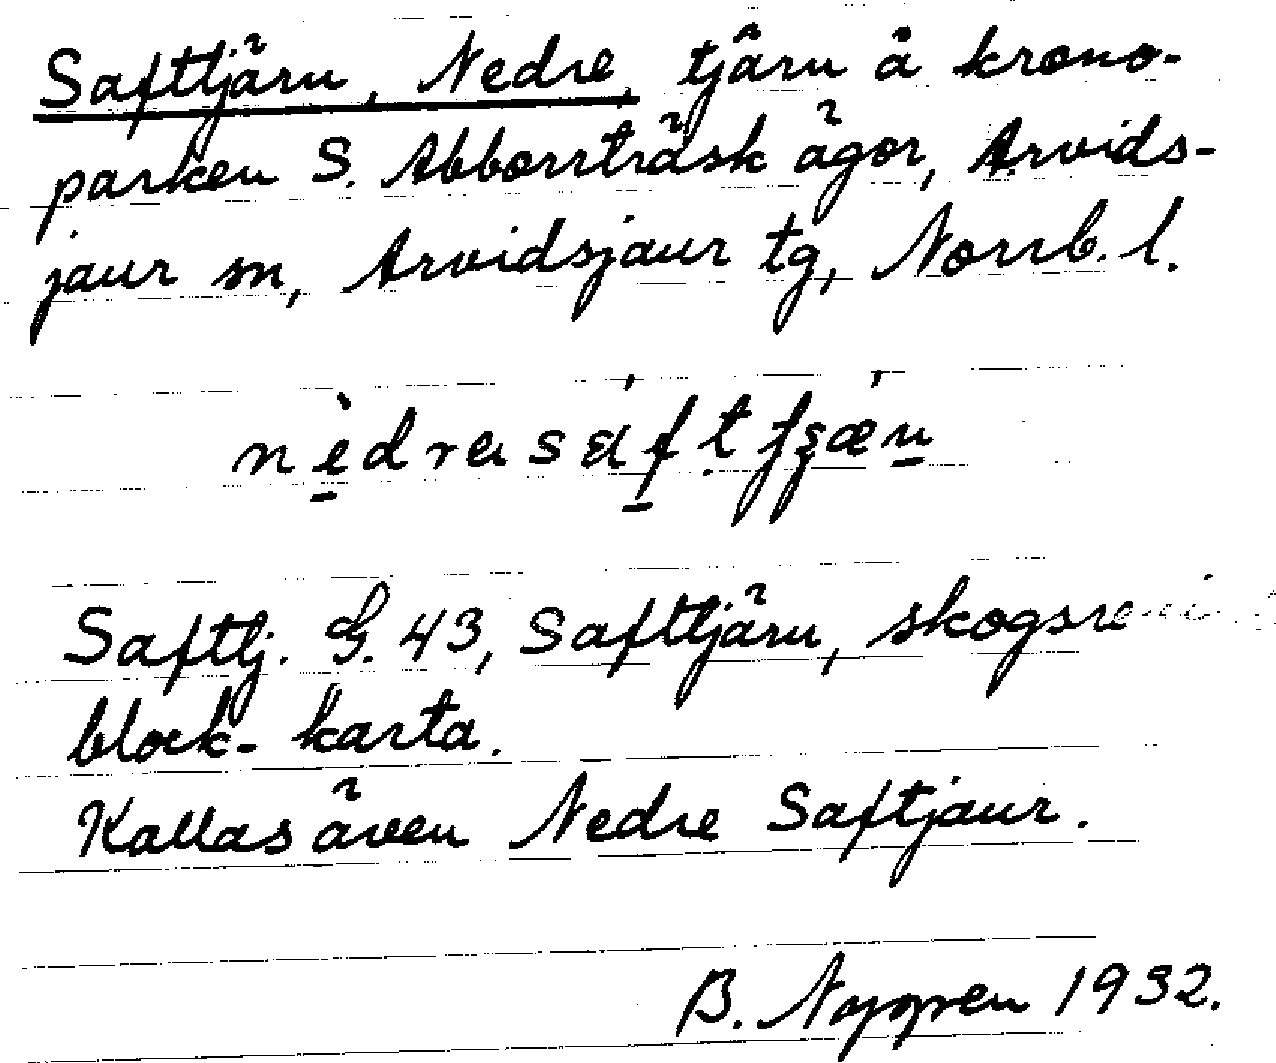 Saftjärn, Nedre, tjärn å krono-
parken S. Abborrträsk ägor, Arvids-
jaur sn, Arvidsjaur tg, Norrb. l.
Saftj. G. 43, Saftjärn,
block-karta.
Kallas även Nedre Saftjaur.
B. Nygren 1932.